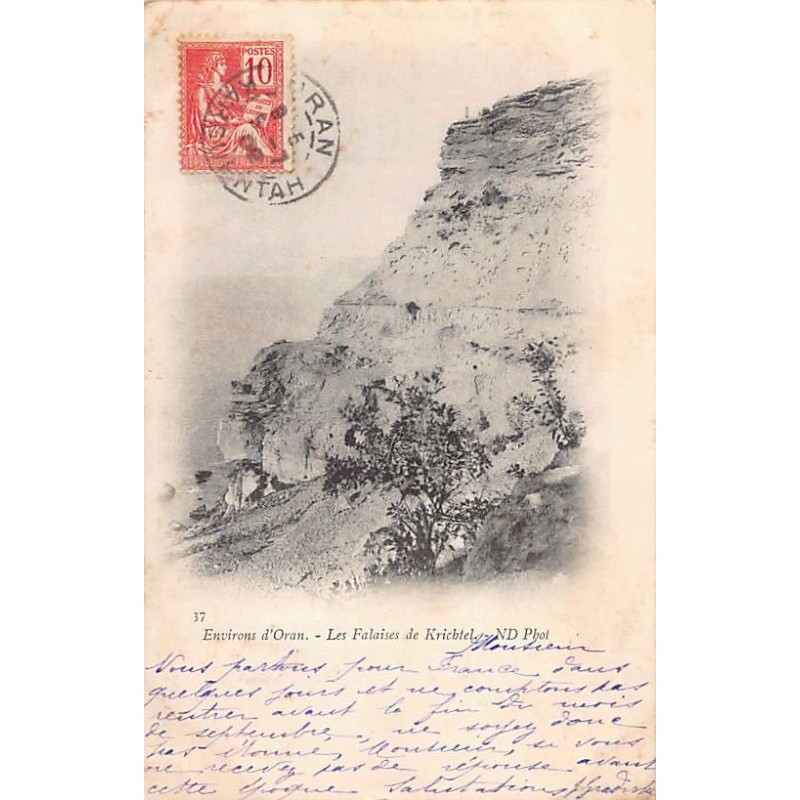 POSTES
10
RÉPUBLIQUE FRANÇAISE
ORAN
KARGUENTAH
37
Environs d'Oran. - Les Falaises de Krichtel. - ND Phot
Monsieur
Nous partons pour France dans
quelques jours et ne comptons pas
rentrer avant la fin du mois
de septembre, ne soyez donc
pas étonné, Monsieur, si vous
ne recevez pas de réponse avant
cette époque Salutations